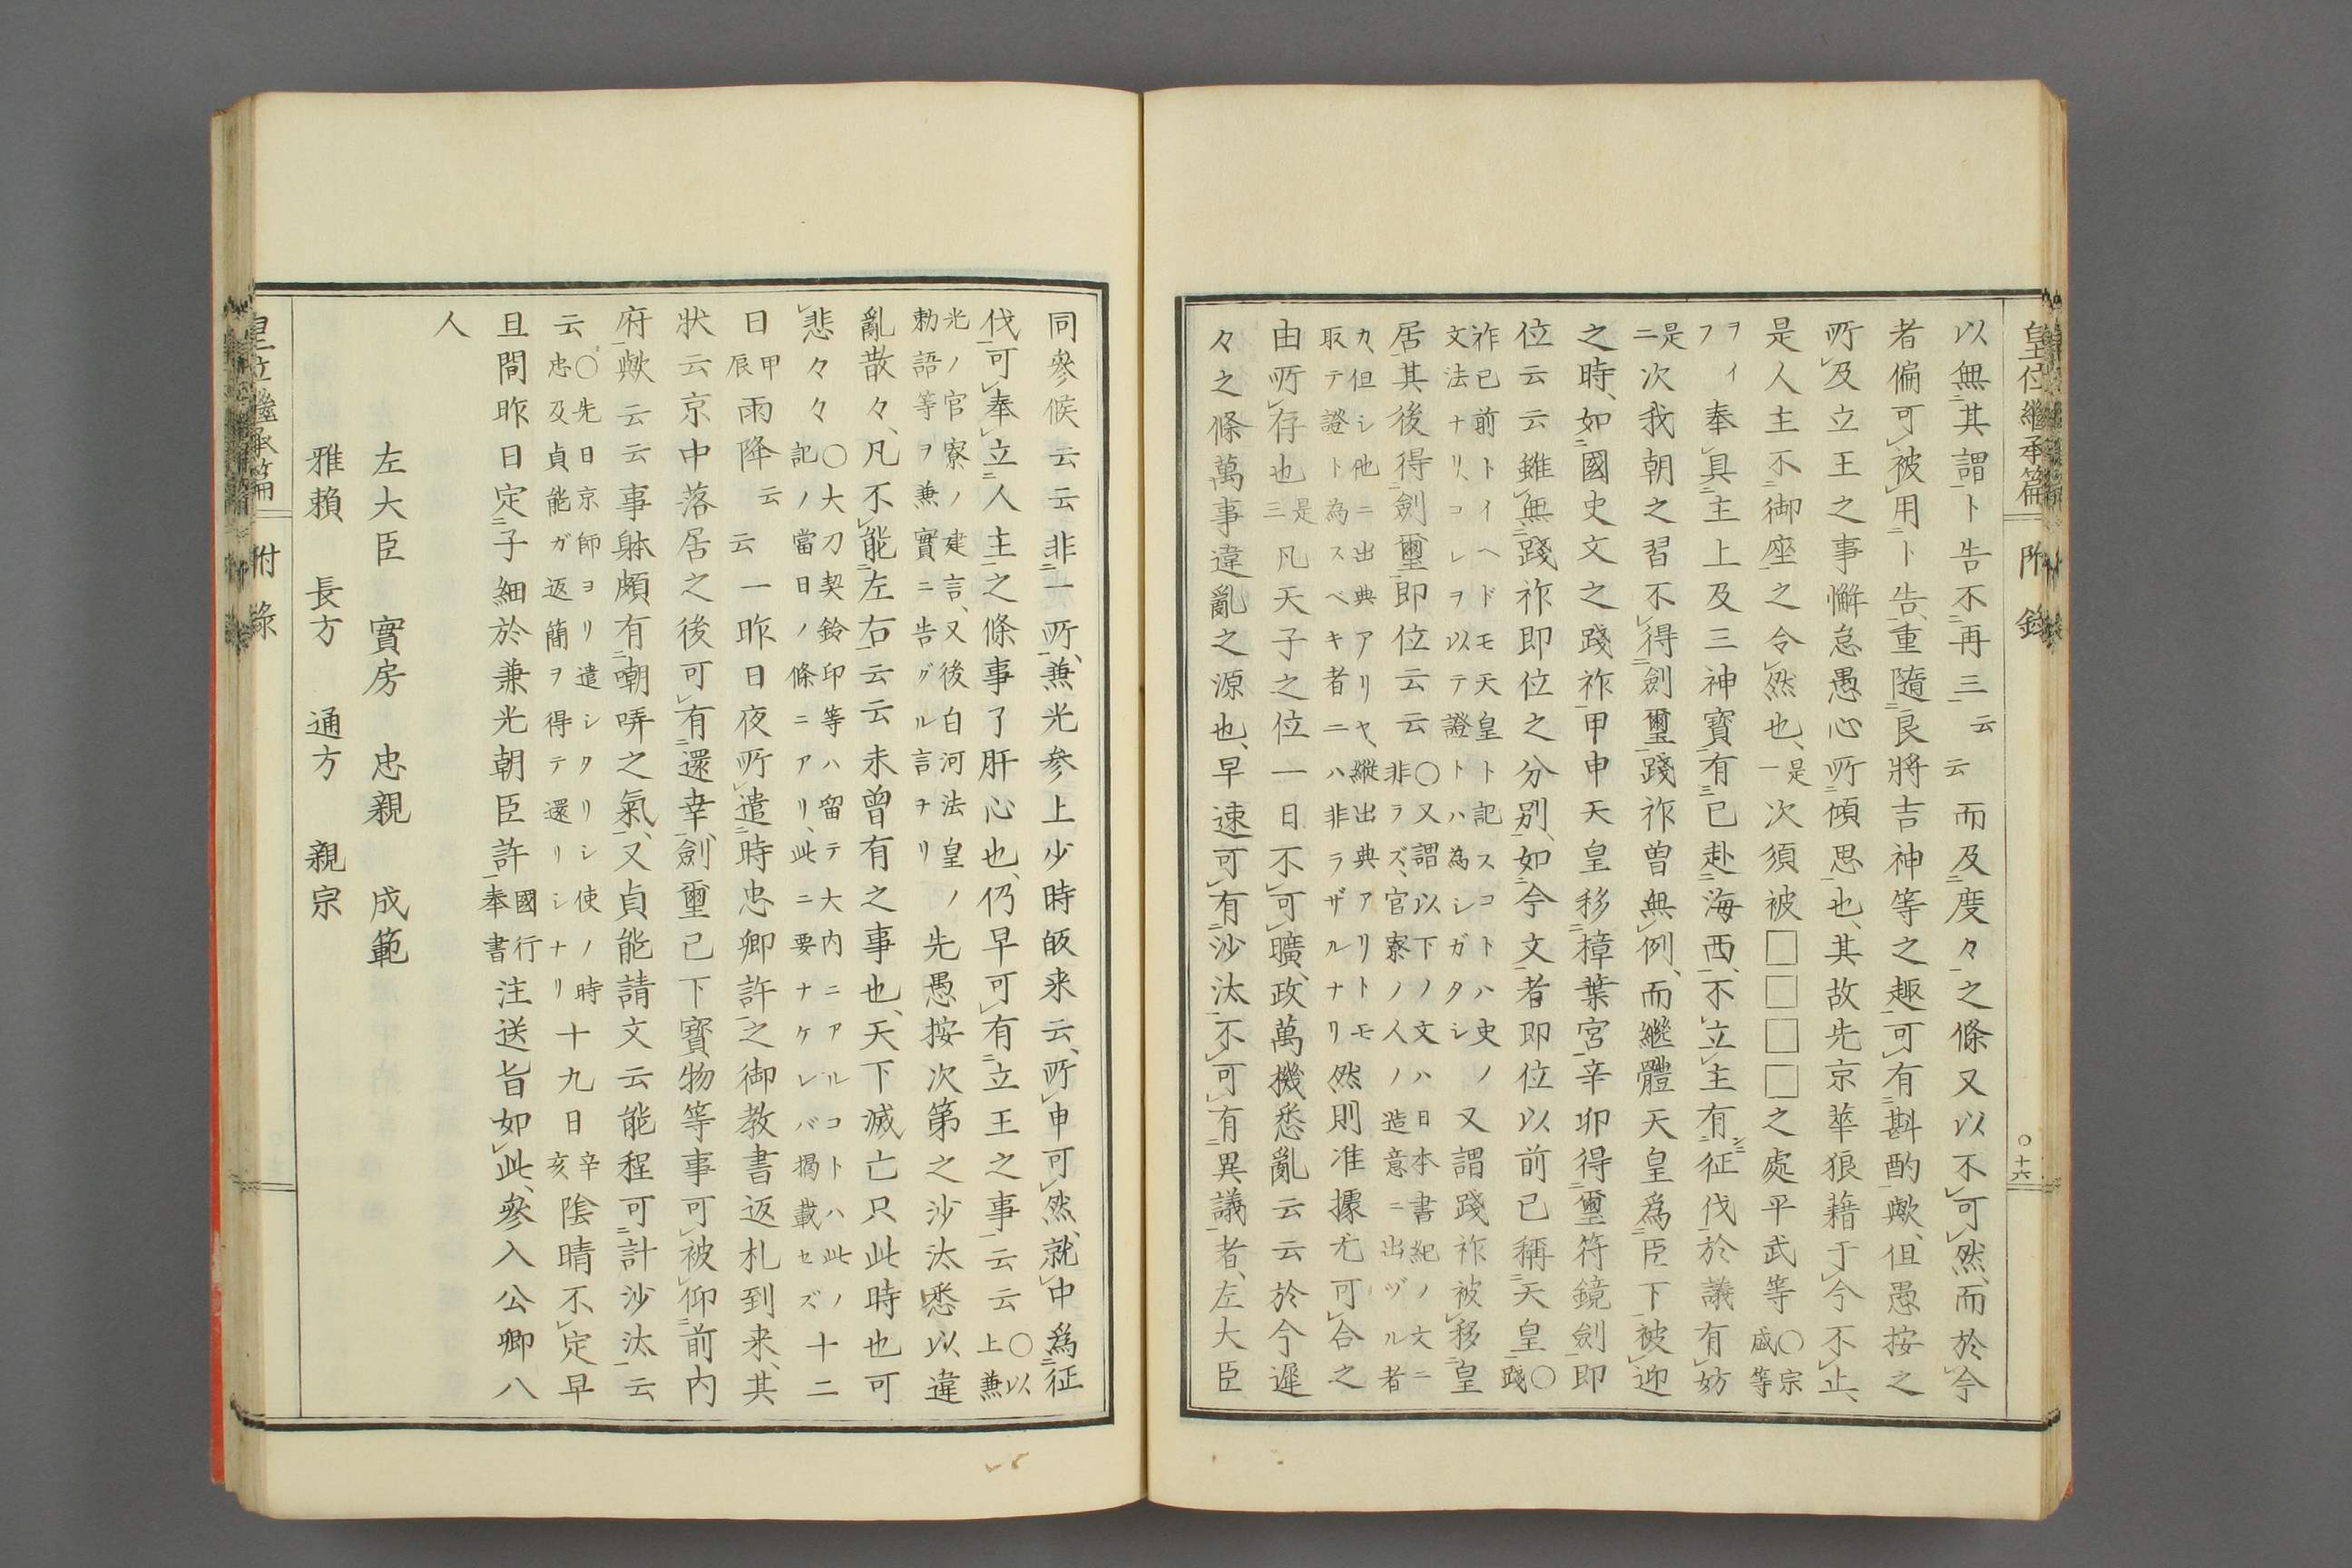 皇位繼承篇 附錄 ○十六
以無其謂ト告不再三云云而及度々之條又以不可然、而於今
者偏可被用ト告、重隨良將吉神等之趣可有斟酌歟、但愚按之
所及立王之事懈怠愚心所傾思也、其故先京華狼藉于今不止、
是人主不御座之令然也、是一次須被□□□□之處平武等○宗盛等
ヲイフ奉具主上及三神寶有已赴海西、不立主有征伐於議有妨
是二次我朝之習不得劍璽踐祚曽無例、而繼體天皇爲臣下被迎
之時、如國史文之踐祚甲申天皇移樟葉宮辛卯得璽符鏡劍即
位云云雖無踐祚即位之分別、如今文者即位以前已稱天皇○踐
祚已前トイヘドモ天皇ト記スコトハ史ノ文法ナリ、コレヲ以テ證トハ為シガタシ又謂踐祚被移皇
居其後得劍璽即位云云○又謂以下ノ文ハ日本書紀ノ文ニ非ラズ、官寮ノ人ノ造意ニ出ヅル者
カ、但シ他ニ出典アリヤ、縦出典アリトモ取テ證ト為スベキ者ニハ非ラザルナリ然則准據尤可合之
由所存也是三凡天子之位一日不可曠、政萬機悉亂云云於今遲
々之條萬事違亂之源也、早速可有沙汰不可有異議者、左大臣
同參候云云非一所、兼光参上少時皈来云、所申可然、就中爲征
伐可奉立人主之條事了肝心也、仍早可有立王之事云云○以上兼
光ノ官寮ノ建言、又後白河法皇ノ勅語等ヲ兼實ニ告グル言ヲリ先愚按次第之沙汰悉以違
亂散々、凡不能左右云云未曽有之事也、天下滅亡只此時也可
悲々々○大刀契鈴印等ハ留テ大内ニアルコトハ此ノ記ノ當日ノ條ニアリ、此ニ要ナケレバ掲載セズ十二
日甲辰雨降云云一昨日夜所遣時忠卿許之御教書返札到来、其
狀云京中落居之後可有還幸、劍璽已下寶物等事可被仰前内
府歟云云事躰頗有嘲哢之氣、又貞能請文云能程可計沙汰云
云○先日京師ヨリ遣シタリシ使ノ時忠及貞能ガ返簡ヲ得テ還リシナリ十九日辛亥陰晴不定早
旦間昨日定子細於兼光朝臣許國行奉書注送旨如此、參入公卿八
人
左大臣 實房 忠親 成範
雅賴 長方 通方 親宗
皇位繼承篇 附錄